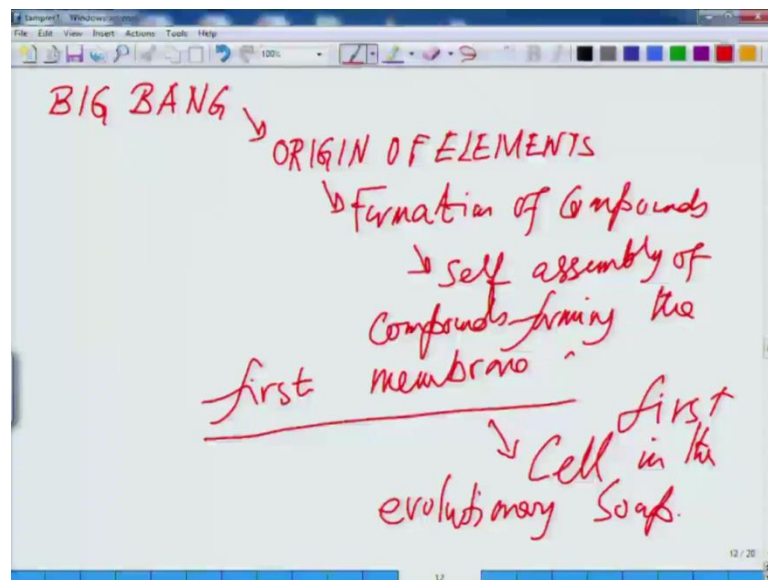 File Edit View Insert Actions Tools Help
100%
BIG BANG
ORIGIN OF ELEMENTS
Formation of Compounds
Self assembly of
Compounds forming the
first membrane
first
Cell in the
evolutionary Soap.
12 / 20
12